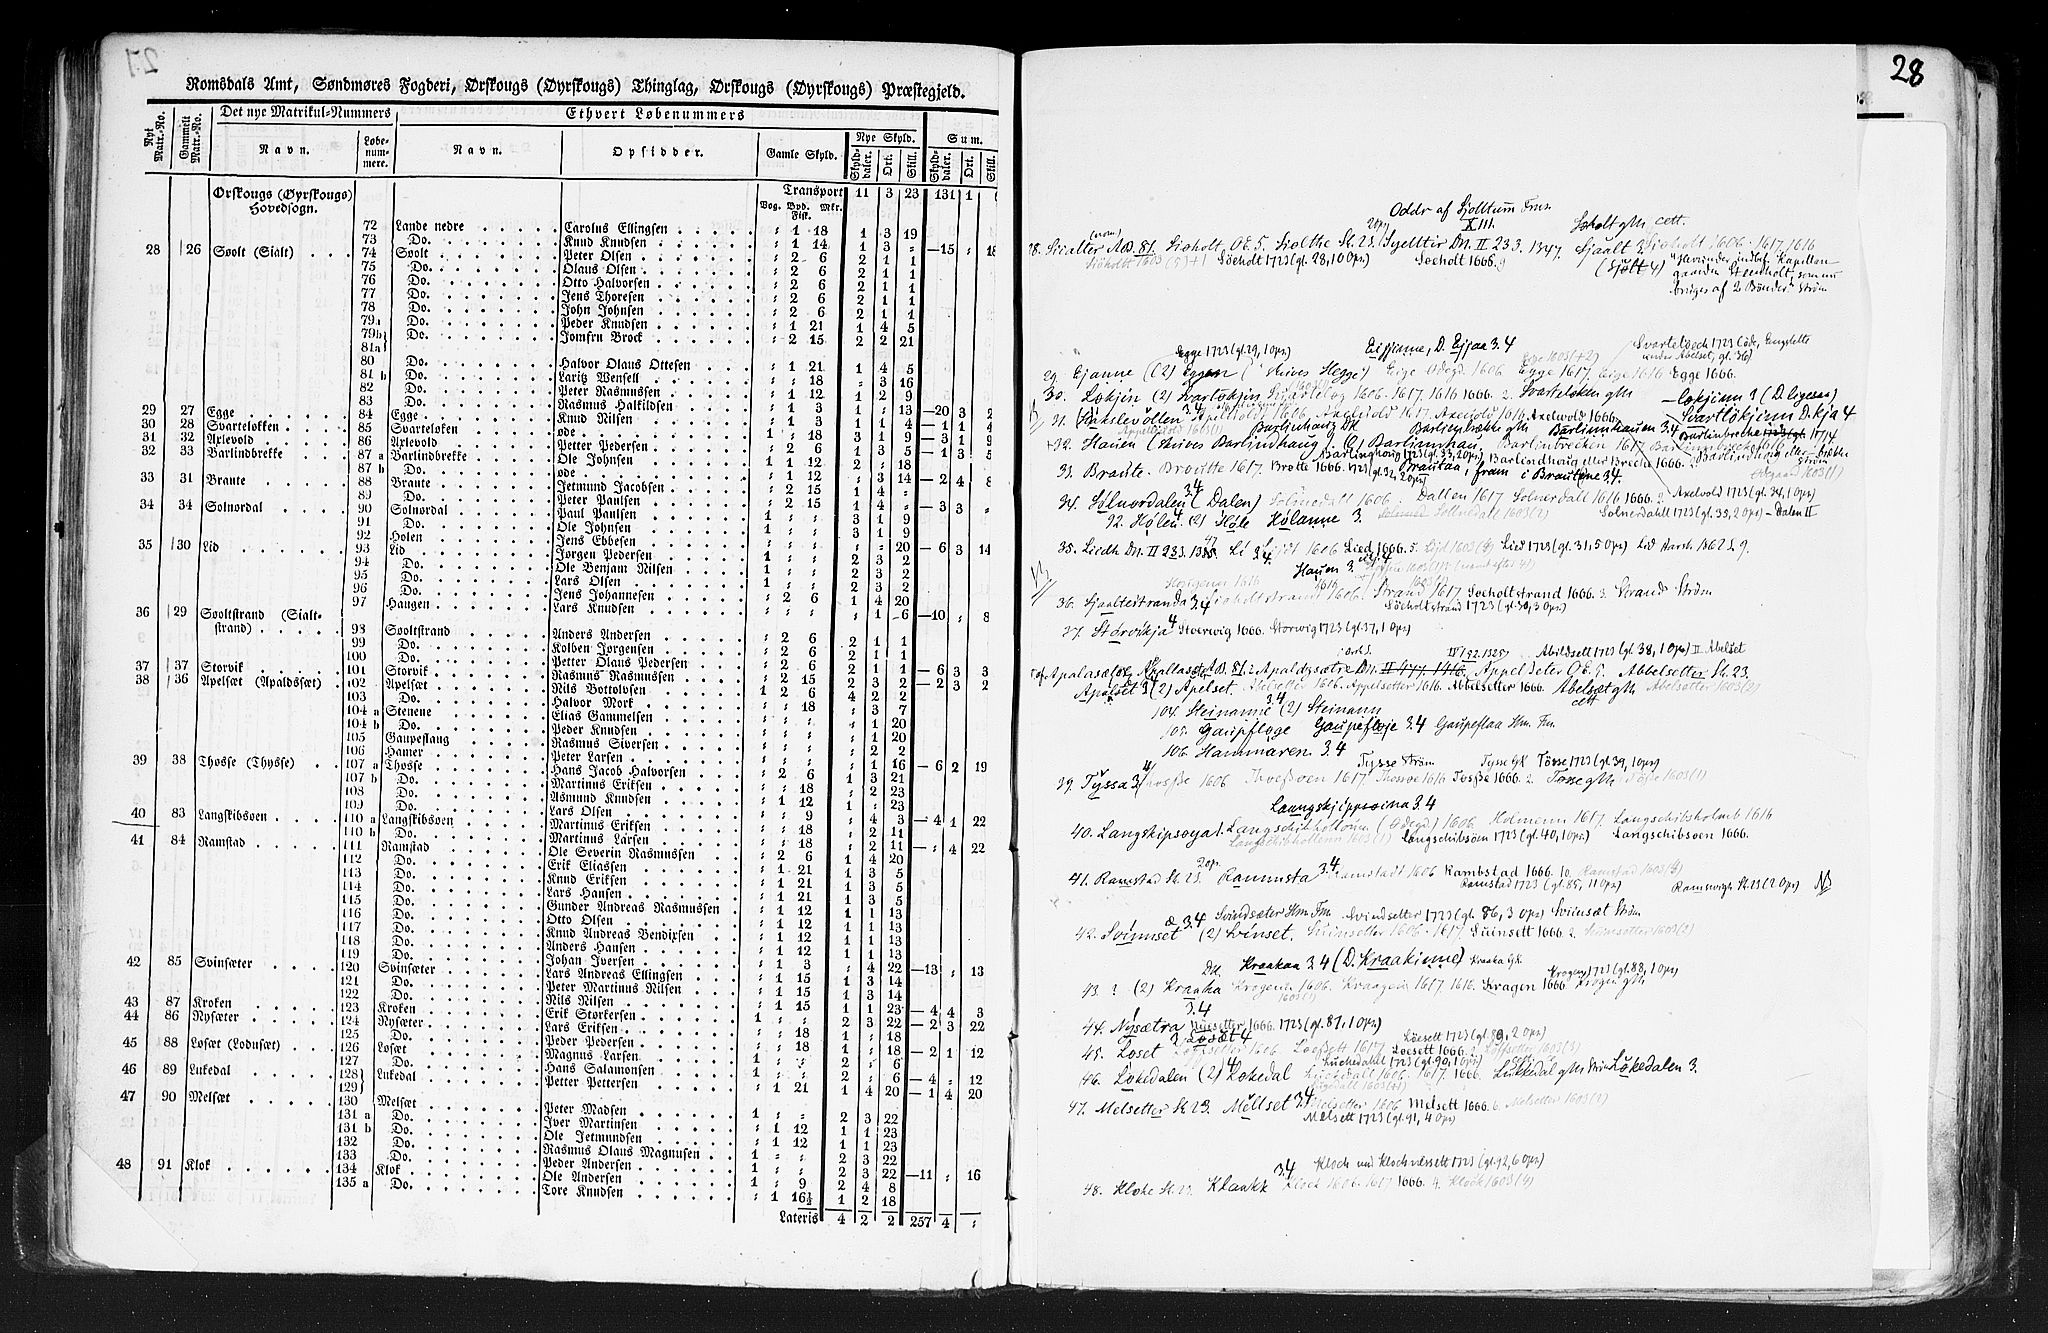 27
Romsdals Amt, Søndmøres Fogderi, Ørskougs (Øyrskougs) Thinglag, Ørskougs (Øyrskougs) Præstegjeld.
Nyt Matr.-No. Gammelt Matr.-No. Det nye Matrikul-Nummers Ethvert Løbenummers
Navn. Løbenummere. Navn. Opsidder. Gamle Skyld. Nye Skyld. Sum.
Skylddaler. Ort. Skill. Skylddaler. Ort. Skill.
Ørskougs (Øyrskougs) Hovedsogn. Transport 11 3 23 131 1
Vog. Bpd. Fisk. Mkr.
72 Lande nedre Carolus Ellingsen " 1 18 1 3 19
73 Do. Knud Knudsen " 1 14 1 3 "
28 26 Søolt (Sialt) 74 Søolt Peter Olsen " 2 6 2 1 1 —15 " 18
75 Do. Olaus Olsen " 2 6 2 1 1
76 Do. Otto Halvorsen " 2 6 2 1 1
77 Do. Jens Thoresen " 2 6 2 1 1
78 Do. John Johnsen " 2 6 2 1 1
79a Do. Peder Knudsen " 1 21 1 4 5
79b 81a Do. Jomfru Brock " 2 15 2 2 21
80 Do. Halvor Olaus Ottesen " 1 21 1 4 5
81 b Do. Laritz Wensell " " 18 " 3 16
82 Do. Peter Rasmussen " 1 12 1 2 9
83 Do. Rasmus Halkildsen " 1 3 1 " 13
29 27 Egge 84 Egge Knud Nilsen " 1 3 1 1 4 —20 3 2
30 28 Svarteløkken 85 Svarteløken øde " " 18 " 1 4 — 1 1 4
31 32 Axlevold 86 Axlevold Petter Pedersen 1 " 18 3 1 9 — 3 1 9
32 33 Barlindbrekke 87 a Barlindbrekke Ole Johnsen " 2 6 1 3 5 — 1 3 5
87 b Do. øde 1 1 12 2 " 18
33 31 Braute 88 Braute Jetmund Jacobsen " 1 12 " 3 14 — 2 4 8
89 Do. Peter Paulsen " 2 15 1 4 "
34 34 Solnordal 90 Solnordal Paul Paulsen " 2 15 1 4 " — 3 3 "
91 Do. Ole Johnsen 1 " " 3 1 9
92 Holen Jens Ebbesen 1 " " 3 1 9
35 30 Lid 93 Lid Jørgen Pedersen " " " " " 20 — 6 3 14
94 Do. Ole Benjam Nilsen 1 " " 2 3 2
95 Do. Lars Olsen 1 " " 2 3 2
96 Do. Jens Johannesen 1 " " 2 3 2
97 Haugen Lars Knudsen " 2 6 1 4 20
36 29 Søoltstrand (Sialtstrand) 98 Søoltstrand Anders Andersen " 2 6 2 1 1 —10 " 8
99 Do. Kolben Jørgensen " 2 6 2 1 1
100 Do. Petter Olaus Pedersen " 2 6 2 1 1
37 37 Storvik 101 Storvik Rasmus Rasmussen " 2 15 2 3 2 — 6 3 3
38 36 Apelsæt (Apaldssæt) 102 Apelsæt Nils Bottolvsen 1 2 6 4 2 2 — 2 3 2
103 Do. Halvor Mork " " 18 " 3 7
104 a Stenene Elias Gammelsen " " " " 1 20
104 b Do. Peder Knudsen " " " " 1 20
105 Gaupeflaug Rasmus Siversen " " " " 2 2
106 Hamer Peter Larsen " " " " 1 16
39 38 Thosse (Thysse) 107 a Thosse Hans Jacob Halvorsen " 2 6 1 3 21 — 6 2 19
107 b Do. Martinus Eriksen " " 18 " 2 23
108 Do. Asmund Knudsen " 1 12 1 " 23
109 Do. Lars Olsen " " 9 " 4 3
40 83 Langskibsøen 110 a Langskibsøen Martinus Eriksen " " 18 " 2 11 — 4 1 22
110 b Do. Martinus Larsen " " 18 " 2 11
41 84 Ramstad 111 Ramstad Ole Severin Rasmussen " 2 6 1 4 20 — " 4 22
112 Do. Erik Eliassen " 1 21 1 3 5
113 Do. Knud Eriksen " 1 21 1 3 5
114 Do. Lars Hansen " 1 21 1 3 5
115 Do. Gunder Andreas Rasmussen " 1 12 1 1 13
116 Do. Otto Olsen " 1 12 1 1 13
117 Do. Knud Andreas Bendixsen " 1 12 1 1 13
118 Do. Anders Hansen " 1 12 1 1 13
119 Do. Johan Iversen " 1 3 " 4 22
42 85 Svinsæter 120 Svinsæter Lars Andreas Ellingsen " 1 15 1 3 14 —13 " 13
121 Do. Peter Martinus Nilsen " 1 15 1 3 14
122 Do. Nils Nilsen " 1 15 1 1 23
43 87 Kroken 123 Kroken Erik Storkersen 1 " " 2 3 22 — 4 4 3
44 86 Nysæter 124 Nysæter Lars Eriksen " " 18 1 " 18 — 2 3 22
125 Do. Peder Pedersen " " 18 1 " 18
45 88 Løsæt (Lodusæt) 126 Løsæt Magnus Larsen 1 " " 2 " 6 — 2 1 12
127 Do. Hans Salamonsen 1 " " 2 " 6
46 89 Lukedal 128 129 Lukedal Petter Pettersen " 1 21 1 4 20 — 4 " 12
47 90 Melsæt 130 Melsæt Peter Madsen 1 " " 2 3 22 — 1 4 20
131 a Do. Iver Martinsen " 1 12 1 1 23
131 b Do. Ole Jetmundsen " 1 12 1 1 23
132 Do. Rasmus Olaus Magnusen 1 " " 2 3 22
133 Do. Peder Andersen 1 " " 2 3 22
48 91 Klok 134 Klok Ole Andersen 1 " 9 2 4 8 —11 " 16
135 a Do. Tore Knudsen " 1 16½ 1 2 18
Lateris 4 2 2 257 4 "
28
Oddr af Sjolltum Fms. XIII. Søholt gM cett.
28. Sialter AB. 81. Sioholt OE. 5. Siolthe St. 23. Syelltir Dn. II 233. 1347. Sjåalt 3. Sioholt 1606. 1617. 1616
Siöholtt 1603 (5)+1 Söeholt 1723 (gl. 28, 10 ps) Soeholt 1666. 9 (Sjölt 4) "Herunder indbef. Kapellan-
gaarden Steenholt, som nu
bruges af 2 Bönder" Ström
Egge 1723 (gl. 29, 1 ps) Eijjinne, D. Ejjaa 3.4 Svartelöech 1723 (øde, Engslette
under Abelset, gl. 36)
29. Ejanne (2) Eggen (skrives Hegge) Eige Ødegd 1606 Egge 1617, Eige 1616 Egge 1666.
30. Løkjin (2) Svartløkjin 1606. 1617. 1616 1666. 2. Svarteløken gM — Løkjinn 3 (D. Løgenaa)
31. Hakslevøllen 3.4 1606. Axelvold 1617. Axevold 1616 Axelvold 1666. Svartløkjinn D. kja 4
32. Hauen (skrives Barlindhaug). (2) Barlinnhau Barlindhoug eller Breche 1666. 2
33. Braute. Broutte 1617. Brøtte 1666. 1723 (gl. 32, 2 ps) Brautaa, fram i Brautene 3.4.
34. Sölnordalen 3.4 (Dalen) Solnedall 1606. Dallen 1617 Solnerdall 1616 1666. 2 Axelvold 1723 (gl. 34, 1 ps)
92. Hølen 4 (2) Høle Hølanne 3. Solnerdahll 1723 (gl. 35, 2 ps) — Dalen II
35. Liedh Dn. II 233. 1347 Li 3.4. 1606 Lied 1666. 5. Lijd 1603 (3) Lied 1723 (gl. 31, 5 ps) Lid Aarsb. 1862 S. 9.
Hauen 3.
36. Sjaaltestranda 3.4 Sioholtstrand 1606. Strand 1617 Soeholtstrand 1666. 3 Strand Ström
Söeholtstrand 1723 (gl. 30, 3 ps)
37. Störvikja 4 Stoerwig 1666. Storwig 1723 (gl. 37, 1 ps)
Abildsett 1723 (gl. 38, 1 ps) II Abelset
Apaldzsætre Dn. II 477. 1416. Appelseter OE. 5. Abbelsetter St. 23.
Apalset 3 (2) Apelset. Abelsetter 1606. Appelsetter 1616. Abbelsetter 1666. Abelsæt gM cett Abelsetter 1603 (2)
104. Steinanne 3.4 (2) Steinann
105. Gaupfløge Gaupefløje 3.4 Gaupeflaa Hm. Fm.
106. Hammaren 3.4
Tysse Ström Tysse GK Tösse 1723 (gl. 39, 1 ps)
39. Tyssa 3.4 Thosße 1606 1617. Thosse 1616 Tosße 1666. 2. Tosse gM Töße 1603 (1)
Laangskjippsøina 3.4
40. Langskipsøya 1. Langschibholtom (Ødegd) 1606. Holmenn 1617. Langschibsholmb 1616
Langschibsöm 1723 (gl. 40, 1 ps) Langschibsoen 1666.
41. Ramstad St. 23. 2 ps Rammsta 3.4 Ramstadt 1606 Rambstad 1666. 10 Ramstad 1603 (4)
Ramstad 1723 (gl. 85, 11 ps) Ramsvigh St. 23 (2 ps) NB
æ 3.4 Svindsæter Hm. Fm. Svindsetter 1723 (gl. 86, 3 ps) Sviinsæt Ström
42. Svinnset (2) Svinset. Suinsetter 1606. 1617 Suinsett 1666. 2. Suinsetter 1603 (2)
Dd. Kraakaa 3.4 (D. Kraakinne) Kraaka GK Krogen 1723 (gl. 88, 1 ps)
43. ? (2) Kraaka Krogenn 1606. Kraagen 1617. 1616. Kragen 1666. Krogen gM
1603 (1)
3.4
44. Nysætra Niesetter 1666. 1723 (gl. 87, 1 ps)
45. Løset 3. Løsæt 4 1606 Loeßett 1617 Loesett 1666. 2 Löesett 1723 (gl. 89, 2 ps)
46. Løkedalen (2) Løkedal 4 1606. 1617. 1666. Lukkedal gM Ström Løkedalen 3.
Luchedahll 1723 (gl. 90, 1 ps)
47. Melsetter St. 23. Mellset 3.4 Melsetter 1606 Melsett 1666. 6. Melsetter 1603 (2)
Melsett 1723 (gl. 91, 4 ps)
Kloch und Klochnessett 1723 (gl. 92, 6 ps)
48. Kloke St. 23. Klaakk 3.4 Klock 1606. 1617 1666. 4. Klock 1603 (4)